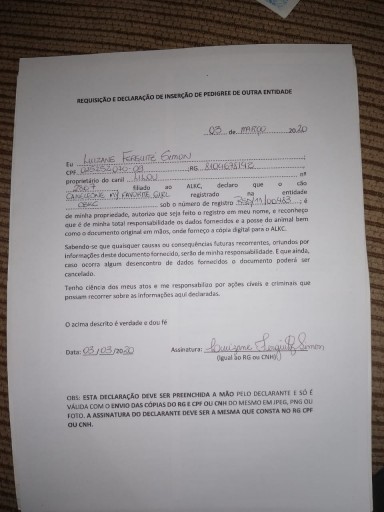 REQUISIÇÃO E DECLARAÇÃO DE INSERÇÃO DE PEDIGREE DE OUTRA ENTIDADE
03 de MARÇO 2020
Eu Luizane Ferguitz Simon
CPF RG
proprietário do canil LILOU nº
2867 filiado ao ALKC, declaro que o cão
MY FAVORITE GIRL registrado na entidade
sob o número de registro é
de minha propriedade, autorizo que seja feito o registro em meu nome, e reconheço
que é de minha total responsabilidade os dados fornecidos e a posse do animal bem
como o documento original em mãos, onde forneço a cópia digital para o ALKC.
Sabendo-se que quaisquer causas ou consequências futuras recorrentes, oriundos por
informações deste documento fornecido, serão de minha responsabilidade. E que ainda,
caso ocorra algum desencontro de dados fornecidos o documento poderá ser
cancelado.
Tenho ciência dos meus atos e me responsabilizo por ações cíveis e criminais que
possam recorrer sobre as informações aqui declaradas.
O acima descrito é verdade e dou fé
Data: 03/03/2020 Assinatura: Luizane Ferguitz Simon
(Igual ao RG ou CNH)
OBS: ESTA DECLARAÇÃO DEVE SER PREENCHIDA A MÃO PELO DECLARANTE E SÓ É
VÁLIDA COM O ENVIO DAS CÓPIAS DO RG E CPF OU CNH DO MESMO EM JPEG, PNG OU
FOTO. A ASSINATURA DO DECLARANTE DEVE SER A MESMA QUE CONSTA NO RG CPF
OU CNH.